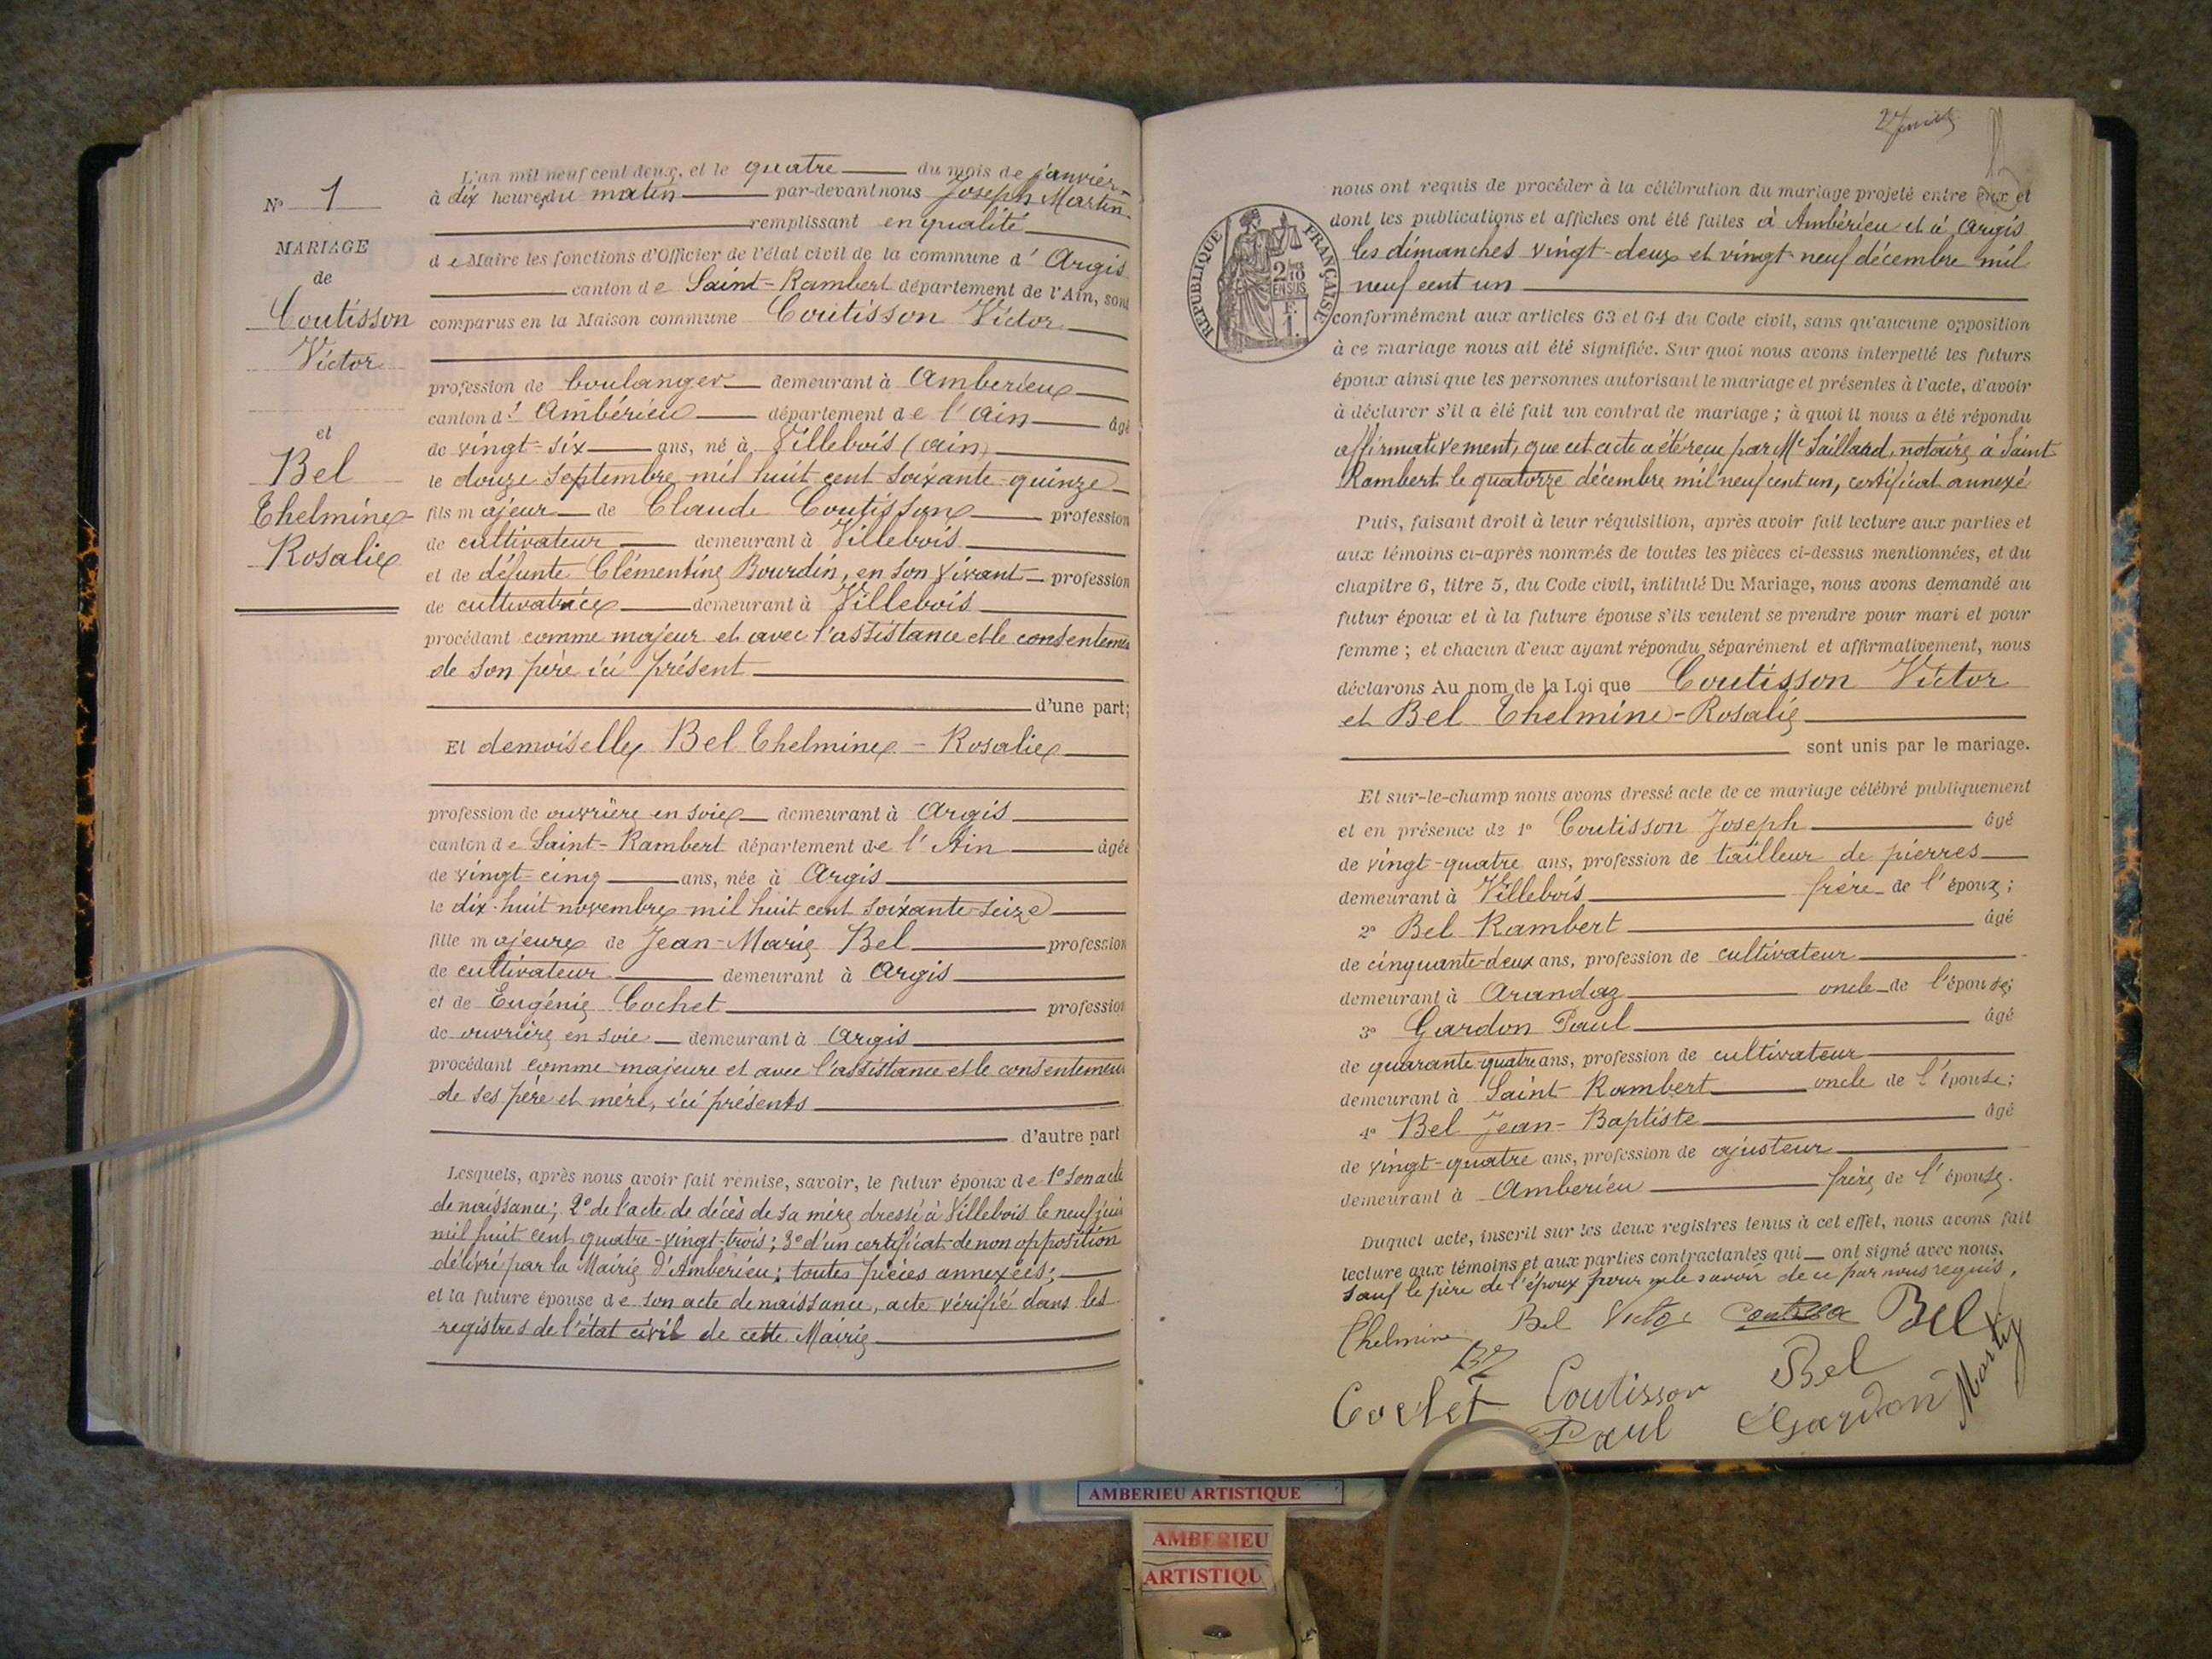 N° 1
MARIAGE
de
Coutisson
Victor
et
Bel
Thelmine
Rosalie
L'an mil neuf cent deux, et le quatre du mois de janvier
à dix heures du matin par-devant nous Joseph Martin
remplissant en qualité
de Maire les fonctions d'Officier de l'état civil de la commune d'Argis
canton de Saint-Rambert département de l'Ain, sont
comparus en la Maison commune Coutisson Victor
profession de boulanger demeurant à Amberieu
canton d'Ambérieu département de l'Ain âgé
de vingt-six ans, né à Villebois (Ain)
le douze septembre mil huit cent soixante-quinze
fils majeur de Claude Coutisson profession
de cultivateur demeurant à Villebois
et de défunte Clémentine Bourdin, en son vivant profession
de cultivatrice demeurant à Villebois
procédant comme majeur et avec l'assistance et le consentement
de son père ici présent
d'une part;
Et demoiselle Bel Thelmine-Rosalie
profession de ouvrière en soie demeurant à Argis
canton de Saint-Rambert département de l'Ain âgée
de vingt-cinq ans, née à Argis
le dix-huit novembre mil huit cent soixante-seize
fille majeure de Jean-Marie Bel profession
de cultivateur demeurant à Argis
et de Eugénie Cochet profession
de ouvrière en soie demeurant à Argis
procédant comme majeure et avec l'assistance et le consentement
de ses père et mère, ici présents
d'autre part
Lesquels, après nous avoir fait remise, savoir, le futur époux de 1° son acte
de naissance; 2° de l'acte de décès de sa mère dressé à Villebois le neuf juin
mil huit cent quatre-vingt-trois; 3° d'un certificat de non opposition
délivré par la Mairie d'Amberieu; toutes pièces annexées;
et la future épouse de son acte de naissance, acte vérifié dans les
registres de l'état civil de cette Mairie
2
RÉPUBLIQUE FRANÇAISE
2/10
EN SUS
F.
1.
nous ont requis de procéder à la célébration du mariage projeté entre eux et
dont les publications et affiches ont été faites à Ambérieu et à Argis
les dimanches vingt-deux et vingt-neuf décembre mil
neuf cent un
conformément aux articles 63 et 64 du Code civil, sans qu'aucune opposition
à ce mariage nous ait été signifiée. Sur quoi nous avons interpellé les futurs
époux ainsi que les personnes autorisant le mariage et présentes à l'acte, d'avoir
à déclarer s'il a été fait un contrat de mariage; à quoi il nous a été répondu
affirmativement, que cet acte a été reçu par Me Saillard, notaire à Saint-
Rambert le quatorze décembre mil neuf cent un, certificat annexé
Puis, faisant droit à leur réquisition, après avoir fait lecture aux parties et
aux témoins ci-après nommés de toutes les pièces ci-dessus mentionnées, et du
chapitre 6, titre 5, du Code civil, intitulé Du Mariage, nous avons demandé au
futur époux et à la future épouse s'ils veulent se prendre pour mari et pour
femme; et chacun d'eux ayant répondu séparément et affirmativement, nous
déclarons Au nom de la Loi que Coutisson Victor
et Bel Thelmine-Rosalie
sont unis par le mariage.
Et sur-le-champ nous avons dressé acte de ce mariage célébré publiquement
et en présence de 1° Coutisson Joseph âgé
de vingt-quatre ans, profession de tailleur de pierres
demeurant à Villebois frère de l'époux;
2° Bel Rambert âgé
de cinquante-deux ans, profession de cultivateur
demeurant à Arandaz oncle de l'épouse;
3° Gardon Paul âgé
de quarante-quatre ans, profession de cultivateur
demeurant à Saint-Rambert oncle de l'épouse;
4° Bel Jean-Baptiste âgé
de vingt-quatre ans, profession de ajusteur
demeurant à Amberieu frère de l'épouse.
Duquel acte, inscrit sur les deux registres tenus à cet effet, nous avons fait
lecture aux témoins et aux parties contractantes qui ont signé avec nous.
sauf le père de l'époux pour ne le savoir de ce par nous requis.
Thelmine Bel Victor Coutisson Bel
Cochet Coutisson Bel Martin
Paul Gardon
AMBERIEU ARTISTIQUE
AMBERIEU
ARTISTIQU